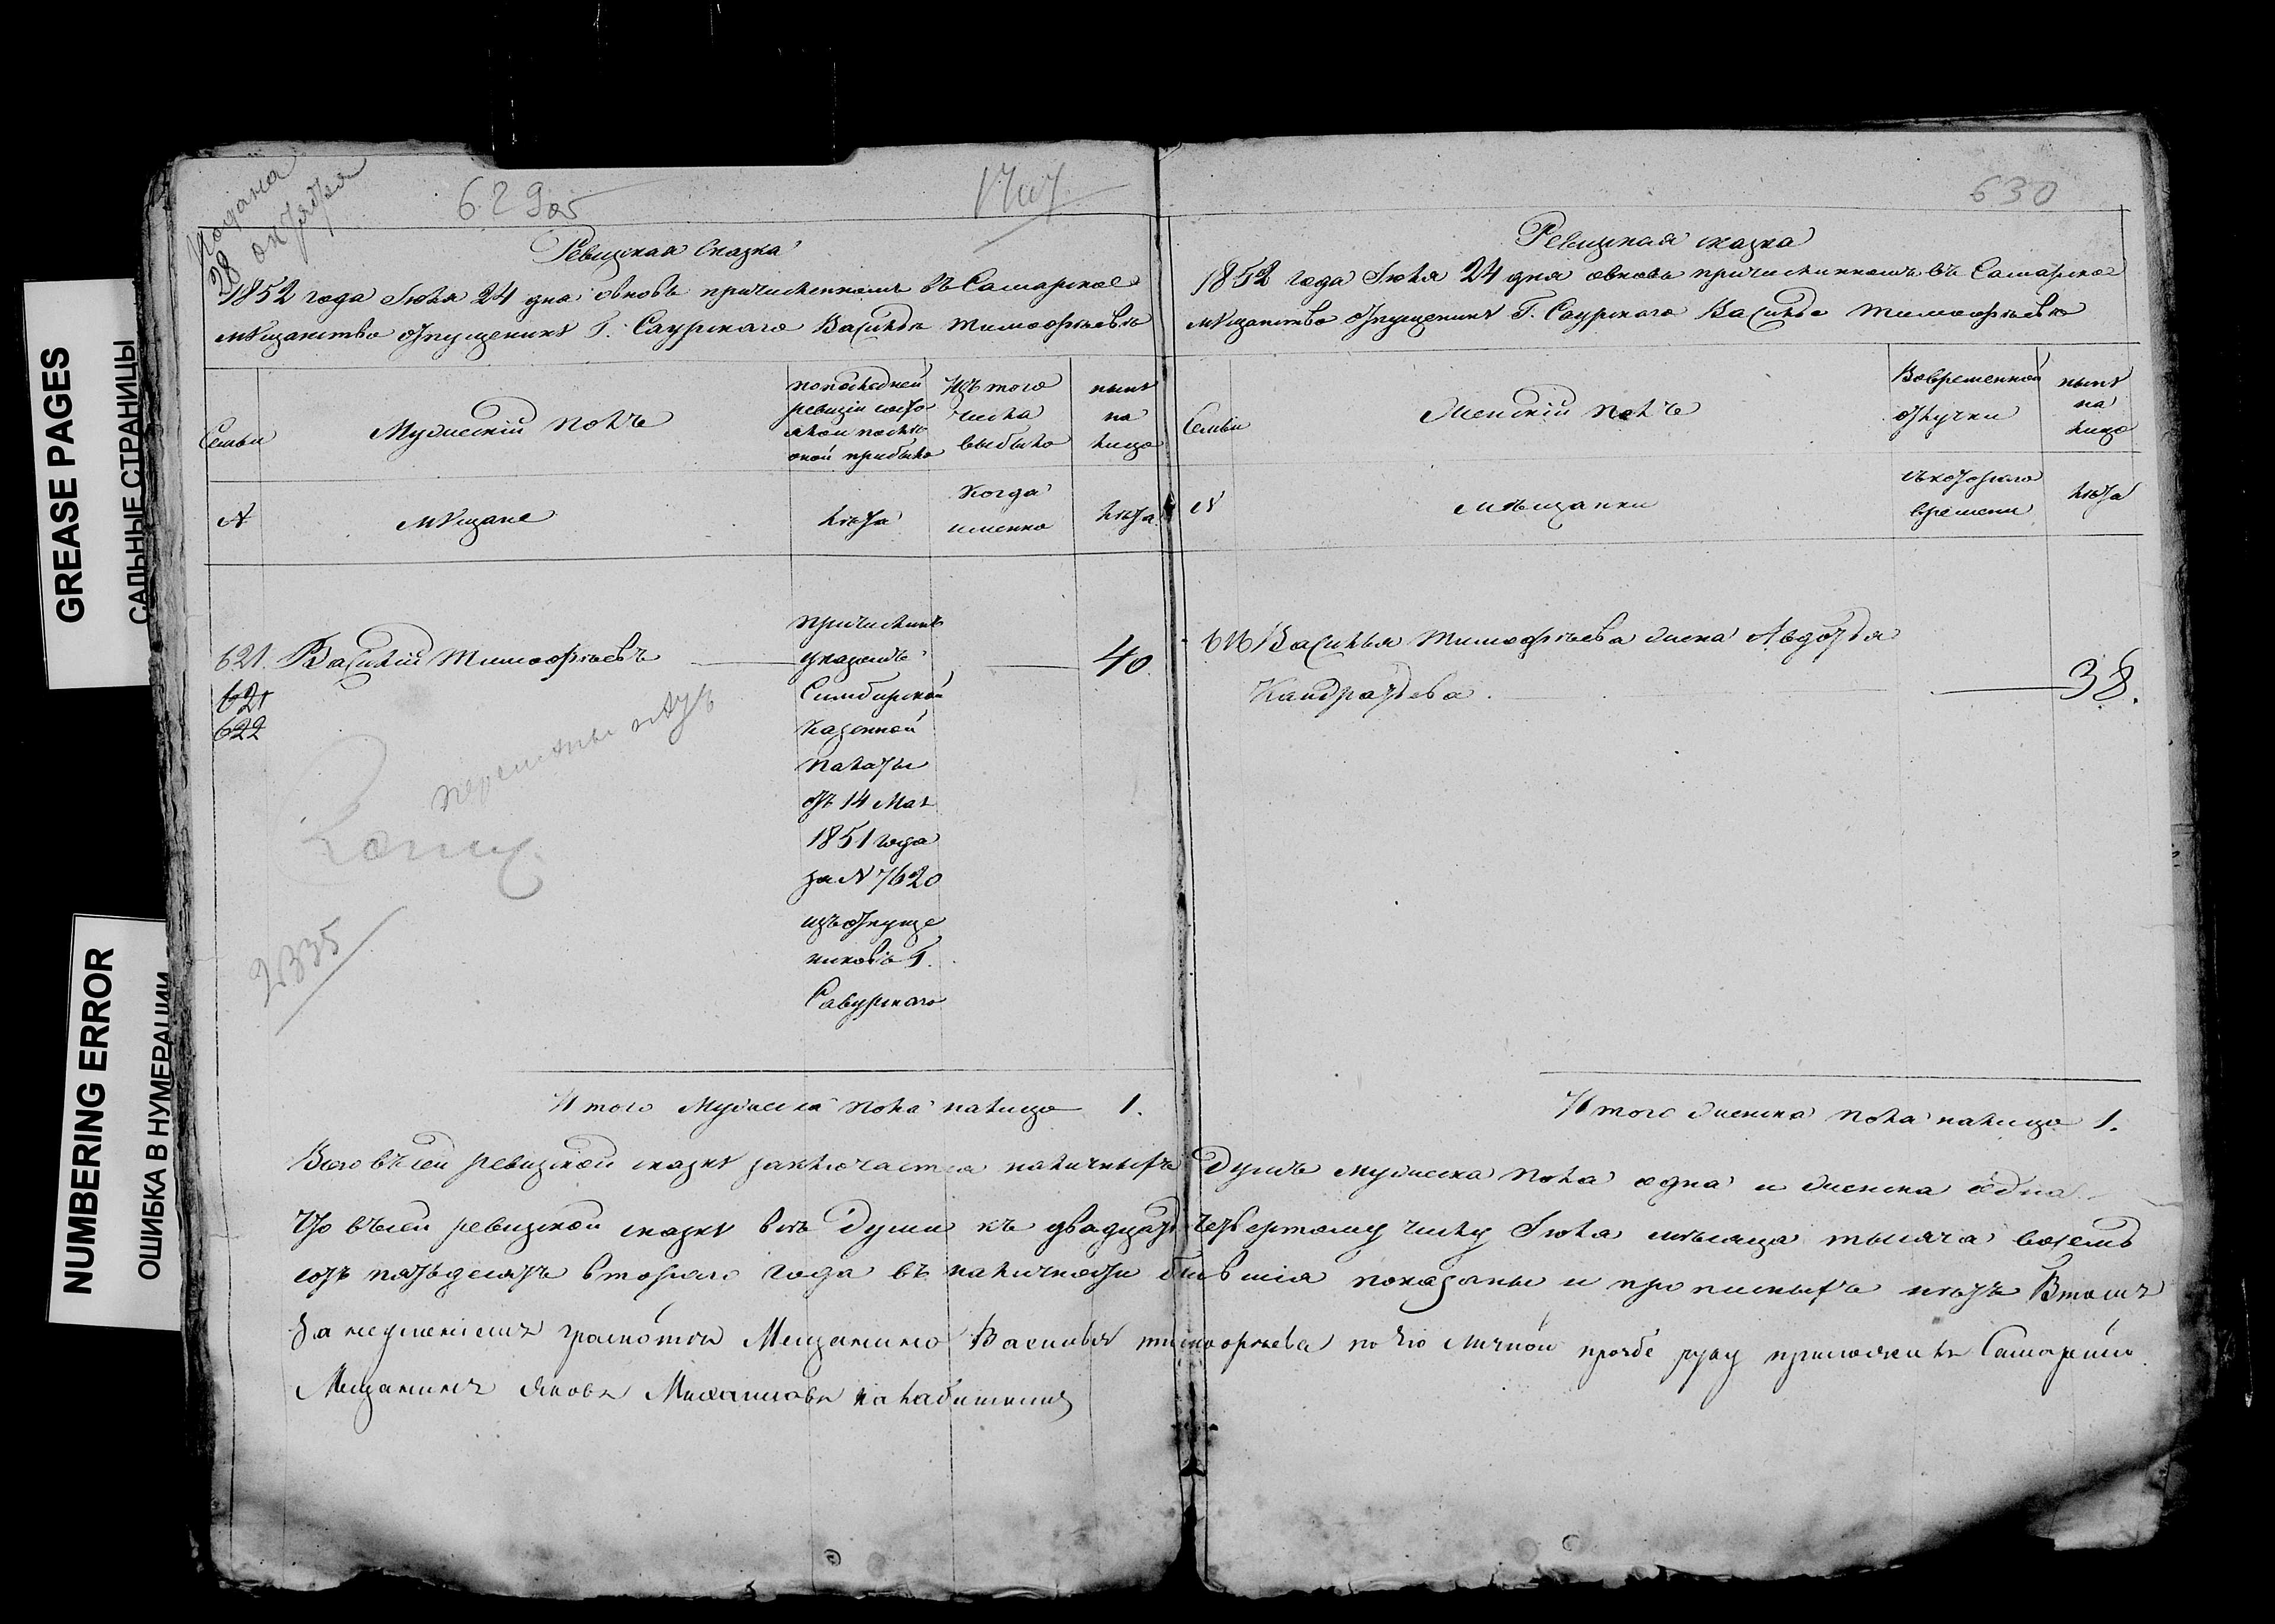 GREASE PAGES
САЛЬНЫЕ СТРАНИЦЫ
NUMBERING ERROR
ОШИБКА В НУМЕРАЦИИ
Подана
28 октября
629об
Ревизская Сказка
1852 года Июля 24 дня о вновь причисленномъ въ Самарское
мѣщанство отпущенникѣ Г. Саурскаго Василье Тимофѣевѣ
Семьи
Мужескій полъ
по последней
ревизіи состо
яло и после
оной прибыло
Изъ того
числа
выбыло
нынѣ
на
лицо
N
мѣщане
лѣта
когда
именно
лѣта
621 Василій Тимофѣевъ
621
622
причисленъ
указомъ
Симбирской
Казенной
Палаты
отъ 14 Мая
1851 года
за N 7620
изъ отпуще
никовъ Г.
Савурскаго
40.
2335
Итого Мужеска пола на лицо 1.
630
Ревизская сказка
1852 года Июля 24 дня о вновь причисленномъ въ Самарское
мѣщанство отпущенникѣ Г. Саурскаго Василье Тимофѣевѣ
Семьи
Женскій полъ
Во временной
отлучки
нынѣ
на
лицо
N
мѣщанки
съ котораго
времени
лѣта
Василья Тимофѣева жена Авдотья
Кандратьева
38.
Итого женска пола на лицо 1.
Всего въ сей ревизской сказкѣ заключается наличныхъ Душъ мужеска пола одна и женска одна
Что въ сей ревизской сказкѣ все Души къ двадцать четвертому числу Июля мѣсяца тысяча восемь
сотъ пятьдесятъ втораго года въ наличности бывшія показаны и прописныхъ нѣтъ Втомъ
За неумѣніемъ грамоты Мещанина Василья тимофѣева по его личной прозбе руку приложилъ Самарской
Мещанинъ Яковъ Михаиловъ